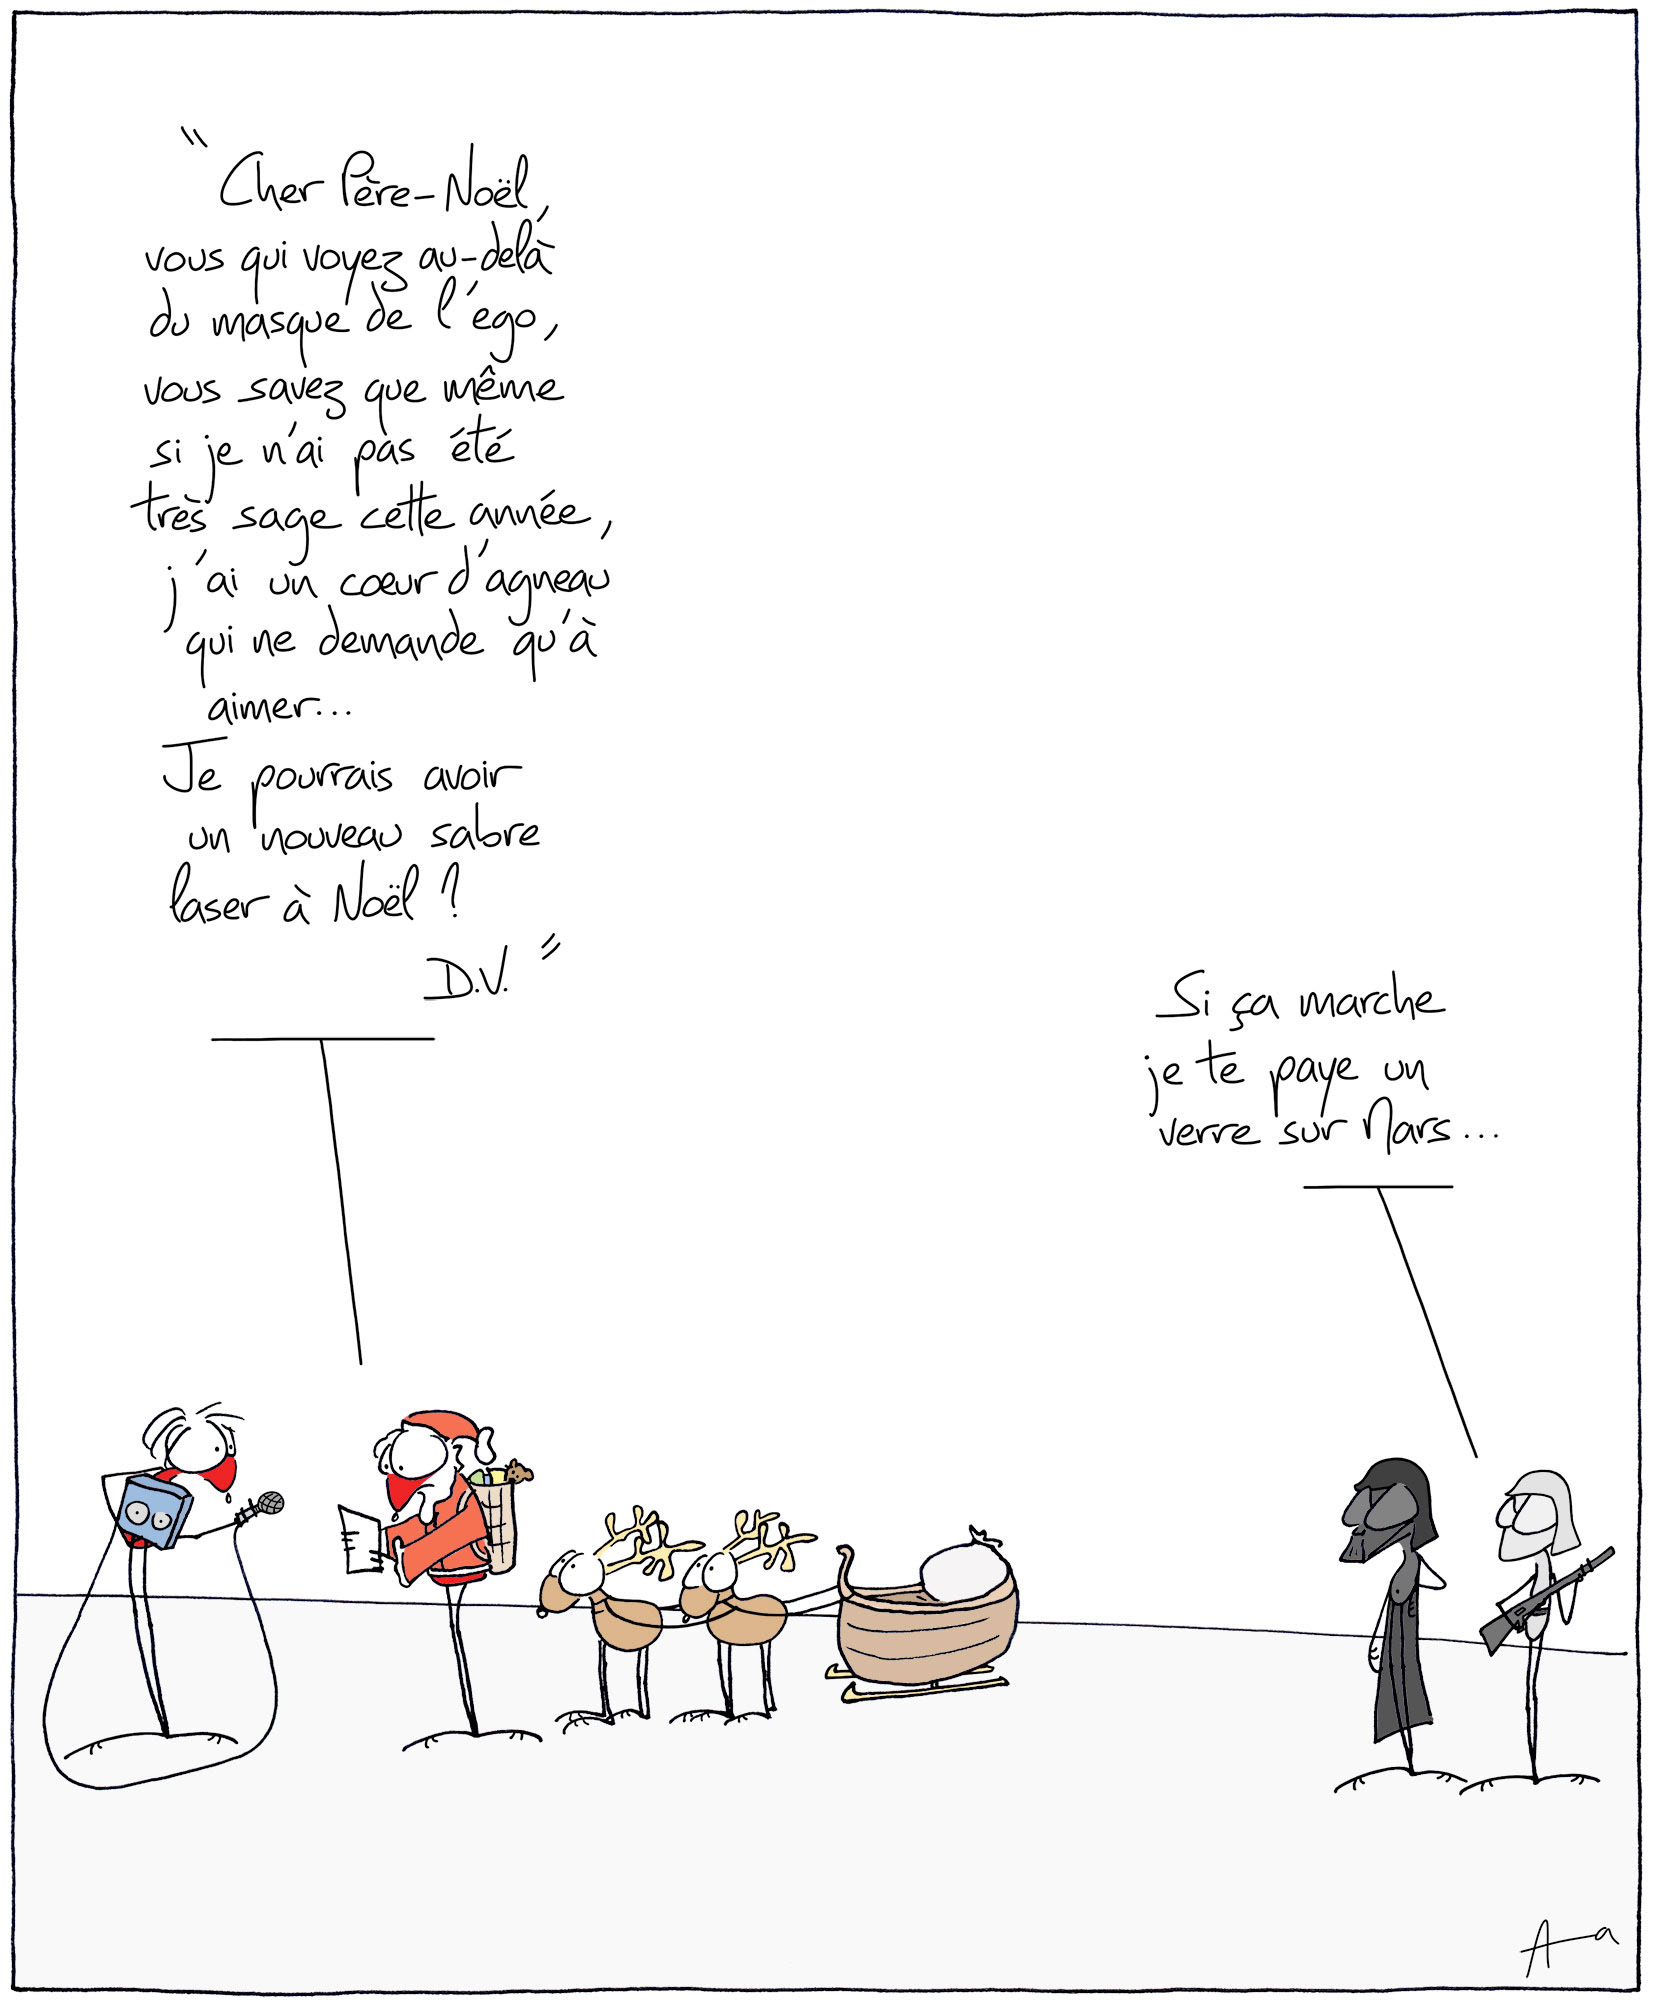 "Cher Père-Noël,
vous qui voyez au-delà
du masque de l'égo,
vous savez que même
si je n'ai pas été
très sage cette année,
j'ai un cœur d'agneau
qui ne demande qu'à
aimer...
Je pourrais avoir
un nouveau sabre
laser à Noël ?
D.V."
Si ça marche
je te paye un
verre sur Mars...